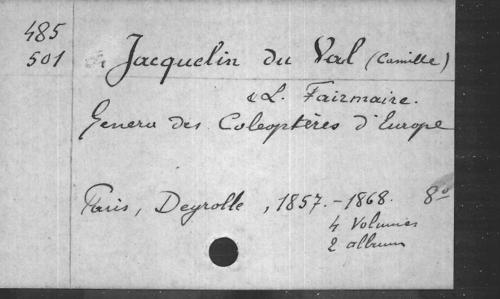 485
501
Jacquelin du Val (Camille)
& L. Fairmaire.
Genera des Coleoptères d'Europe
Paris, Deyrolle, 1857.-1868. 8º
4 Volumes
2 album